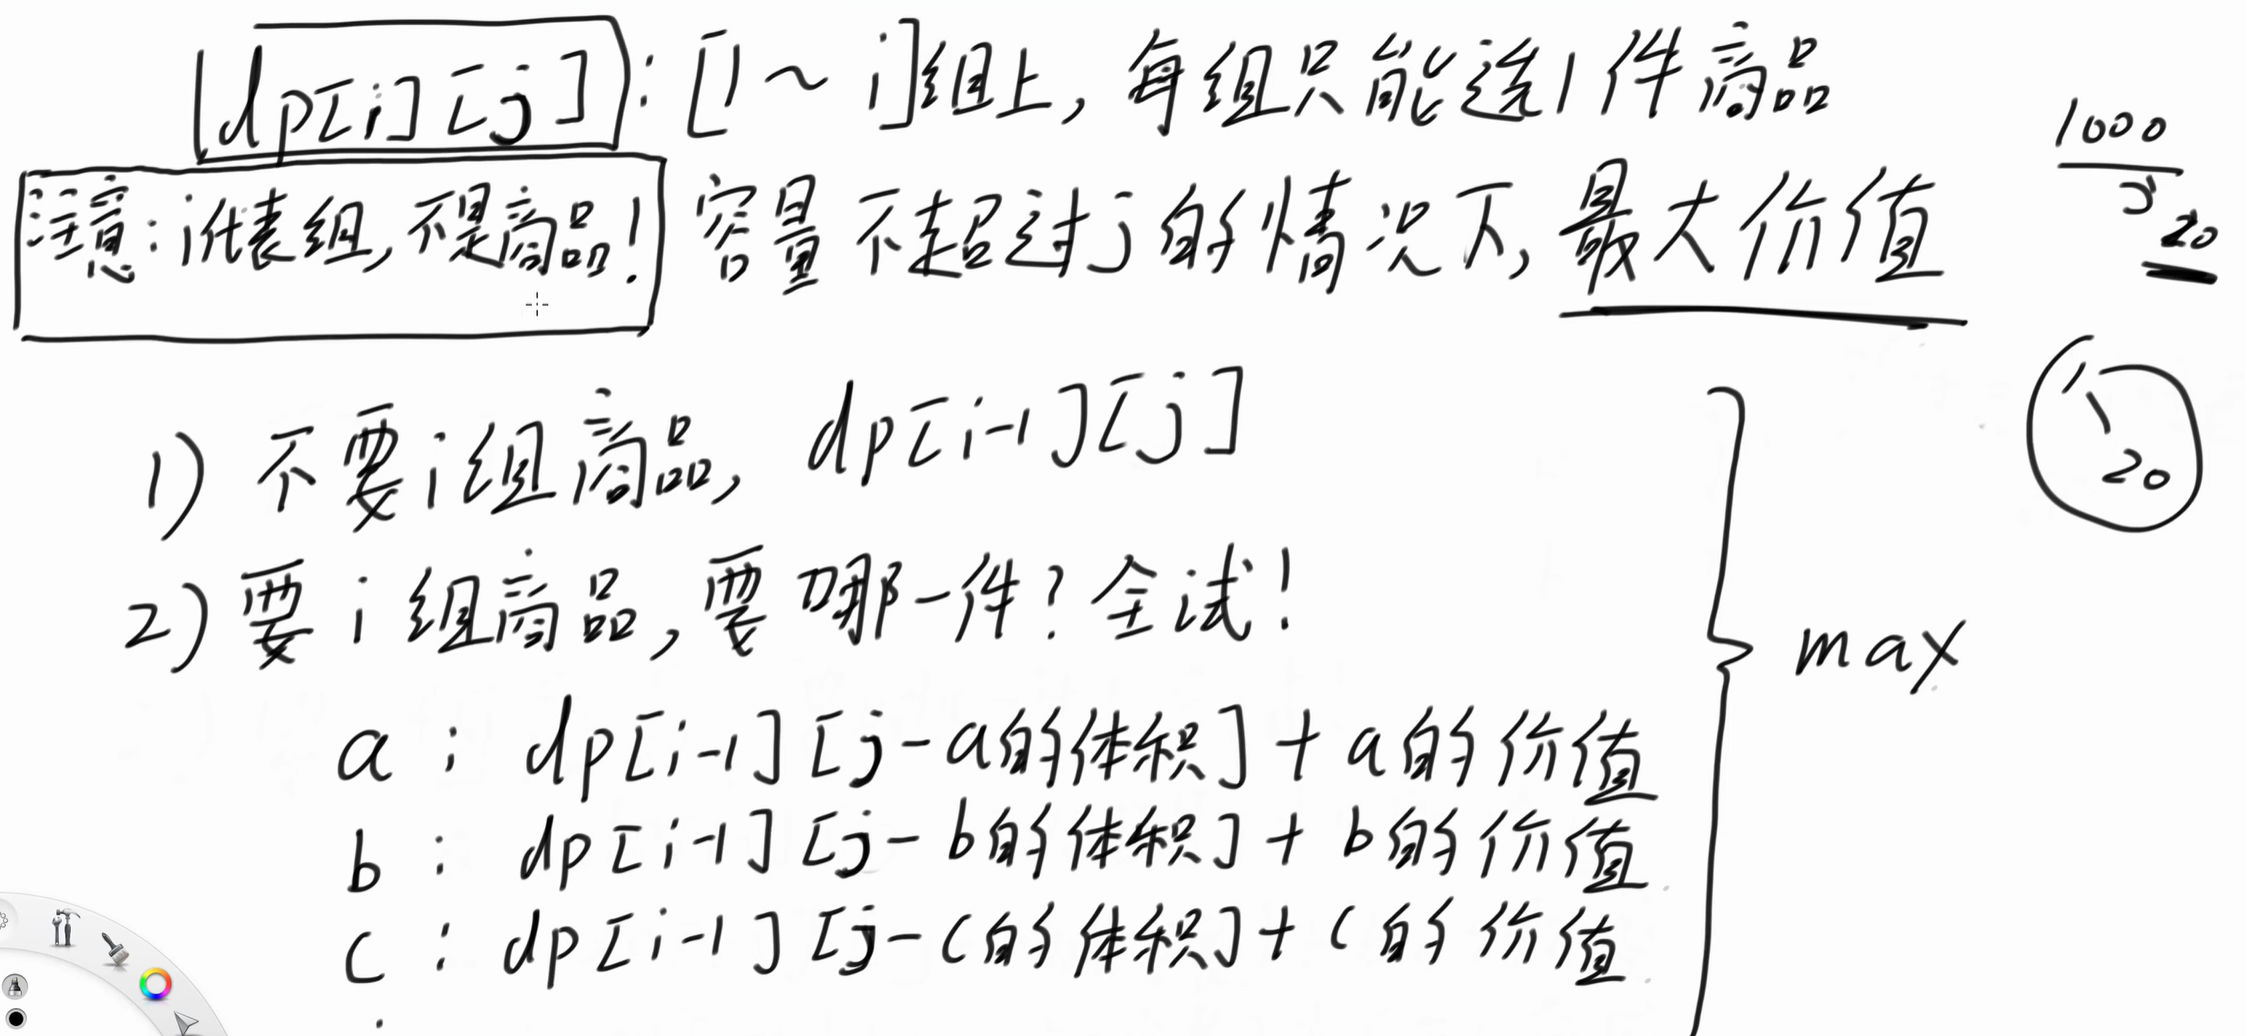 dp[i][j]: [1~i]组上, 每组只能选1件商品
注意: i代表组, 不是商品! 容量不超过j的情况下, 最大价值
1000
3
20
1) 不要i组商品, dp[i-1][j]
1
20
2) 要i组商品, 要哪一件? 全试!
max
a : dp[i-1][j-a的体积]+a的价值
b : dp[i-1][j-b的体积]+b的价值
c : dp[i-1][j-c的体积]+c的价值